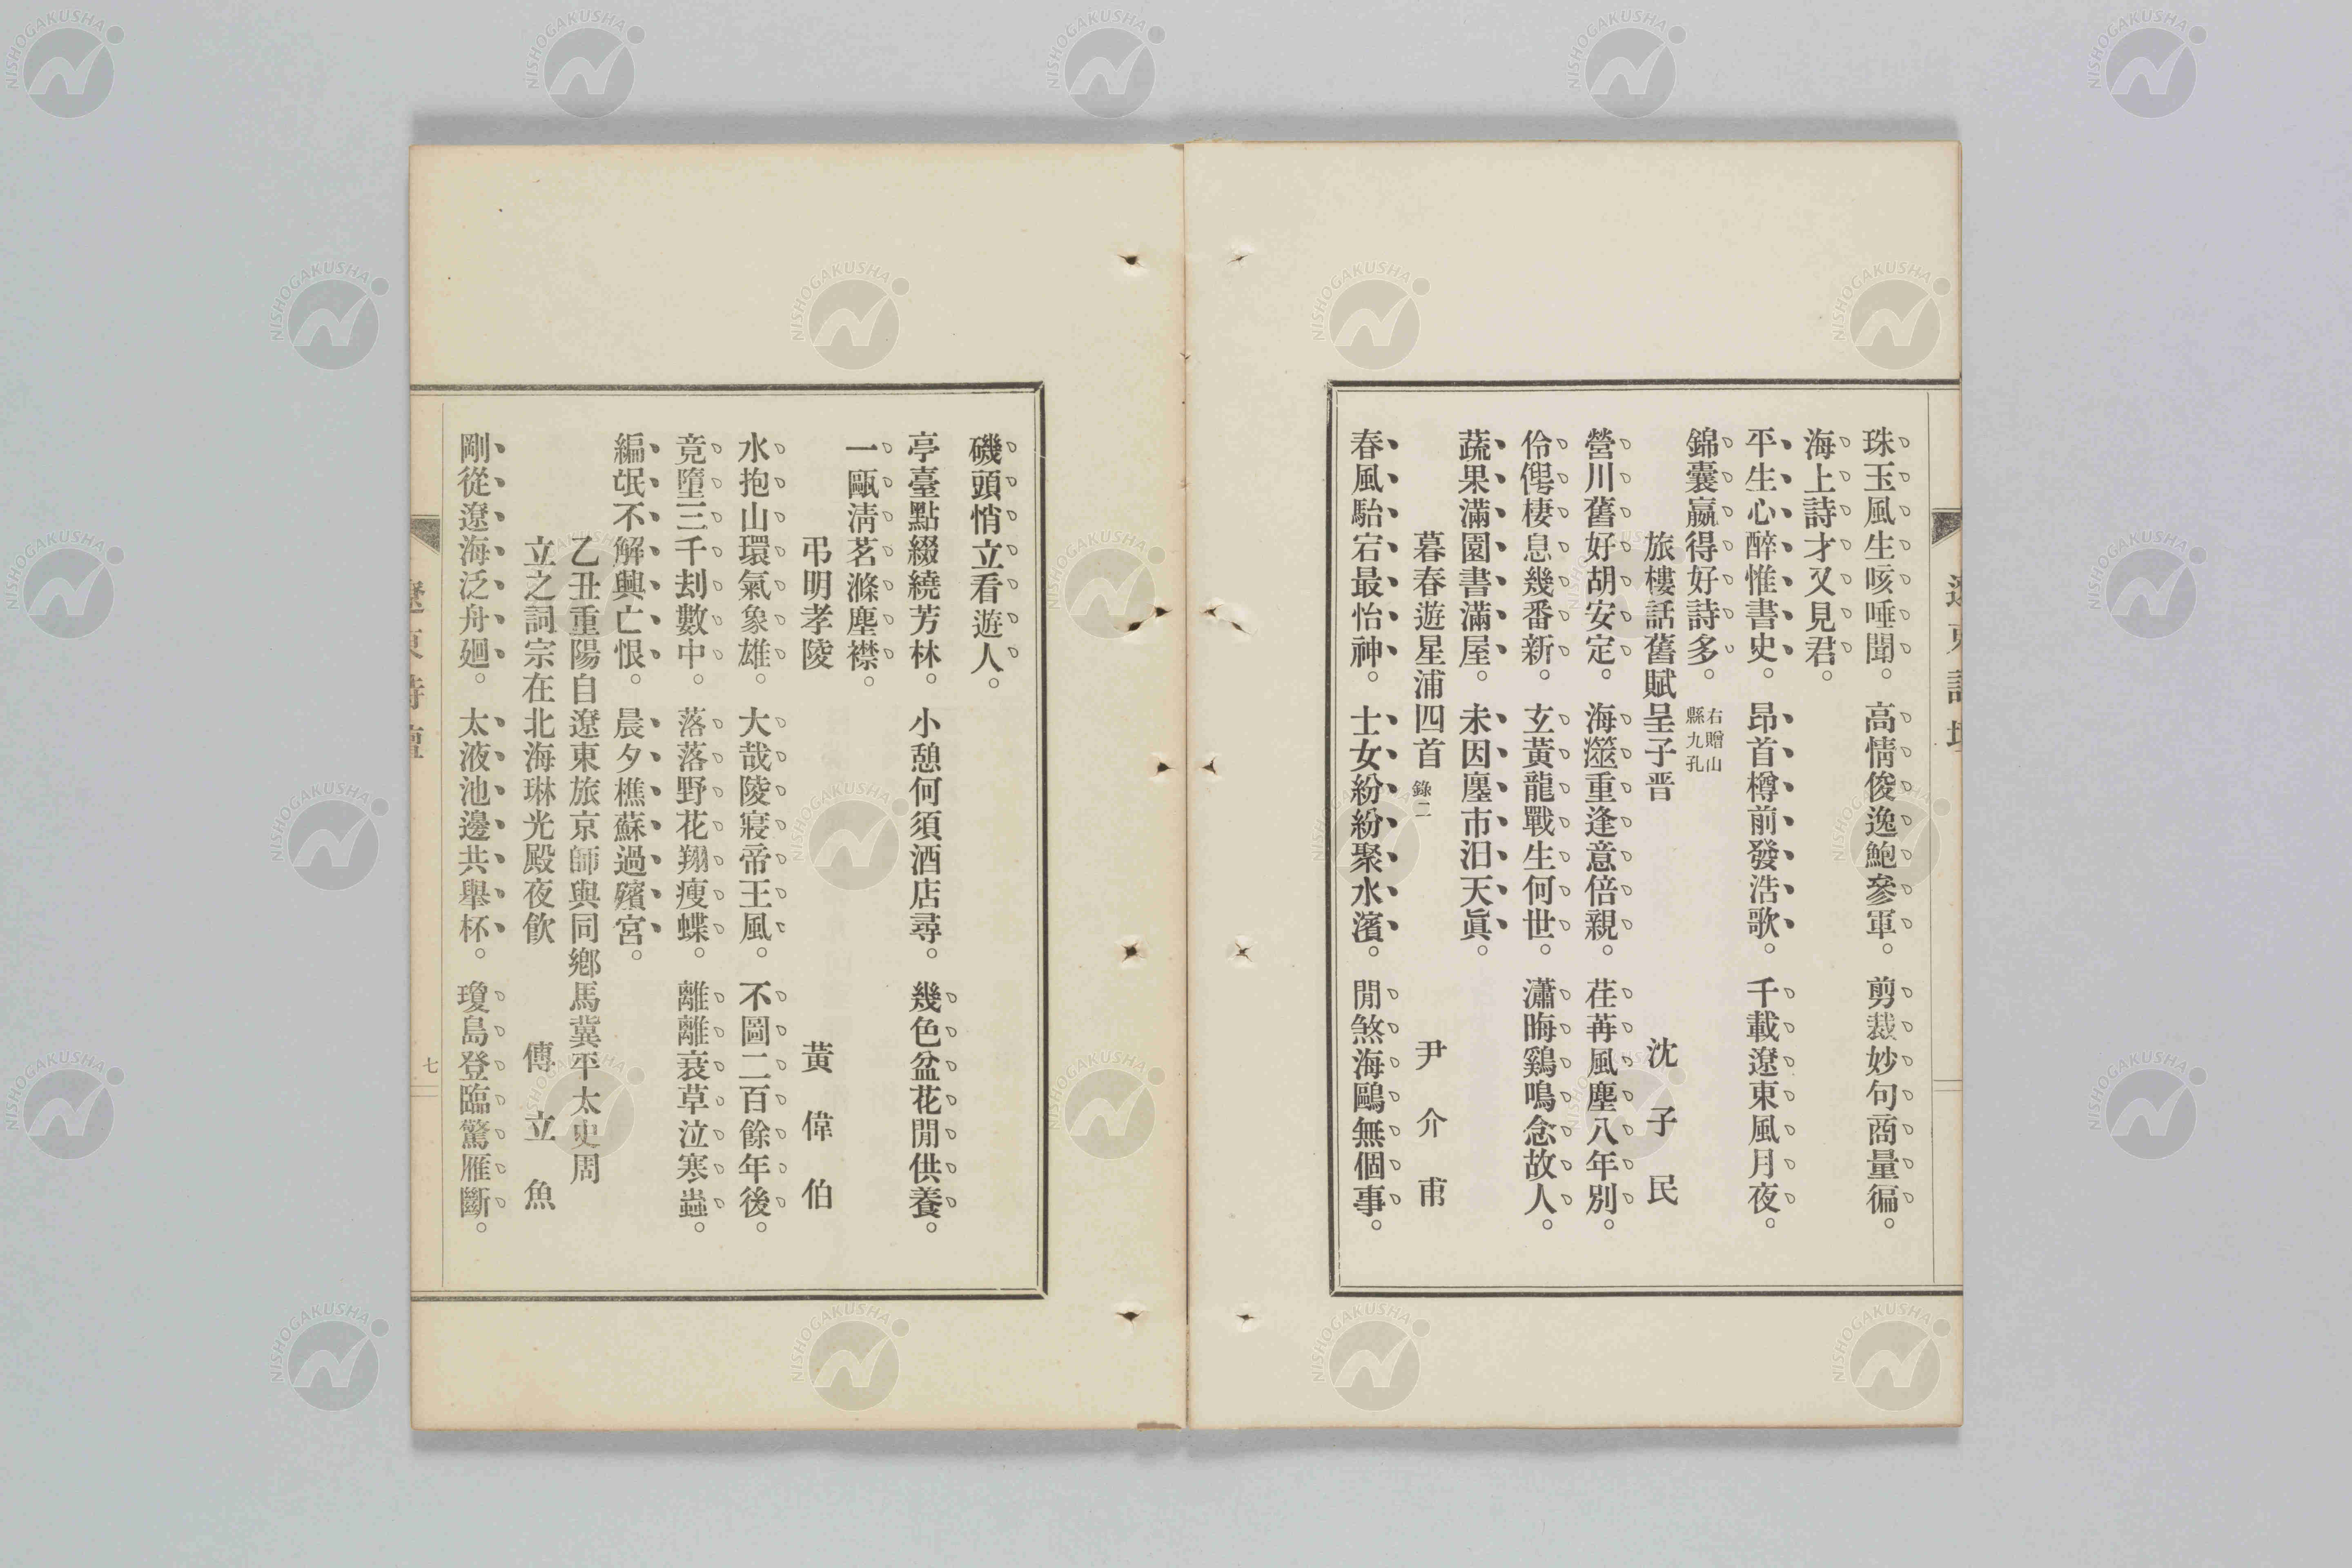 珠玉風生咳唾聞。高情俊逸鮑參軍。剪裁妙句商量徧。
海上詩才又見君。
平生心醉惟書史。昂首樽前發浩歌。千載遼東風月夜。
錦囊嬴得好詩多。右贈山縣九孔
旅樓話舊賦呈子晋 沈子民
營川舊好胡安定。海澨重逢意倍親。荏苒風塵八年別。
伶俜棲息幾番新。玄黃龍戰生何世。瀟晦鷄鳴念故人。
蔬果滿園書滿屋。未因廛市汩天眞。
暮春遊星浦四首 錄二 尹介甫
春風駘宕最怡神。士女紛紛聚水濱。閒煞海鷗無個事。
遼東詩壇
磯頭悄立看遊人。
亭臺點綴繞芳林。小憩何須酒店尋。幾色盆花開供養。
一甌淸茗滌塵襟。
弔明孝陵 黃偉伯
水抱山環氣象雄。大哉陵寢帝王風。不圖二百餘年後。
竟墮三千刦數中。落落野花翔瘦蝶。離離衰草泣寒螀。
編氓不解興亡恨。晨夕樵蘇過殯宮。
乙丑重陽自遼東旅京師與同鄉馬冀平太史周
立之詞宗在北海琳光殿夜飮 傅立魚
剛從遼海泛舟廻。太液池邊共舉杯。瓊島登臨驚雁斷。
遼東詩壇 七
NISHOGAKUSHA